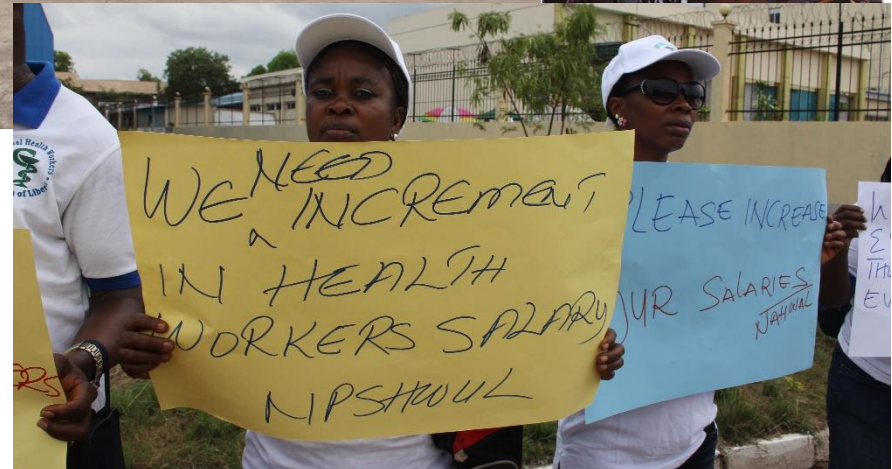 al Health Workers
of Liberi
WE NEED INCREMENT
IN HEALTH
WORKERS SALARY
NIPSHWUL
LEASE INCREASE
UR SALARIES
NATIONAL
RS